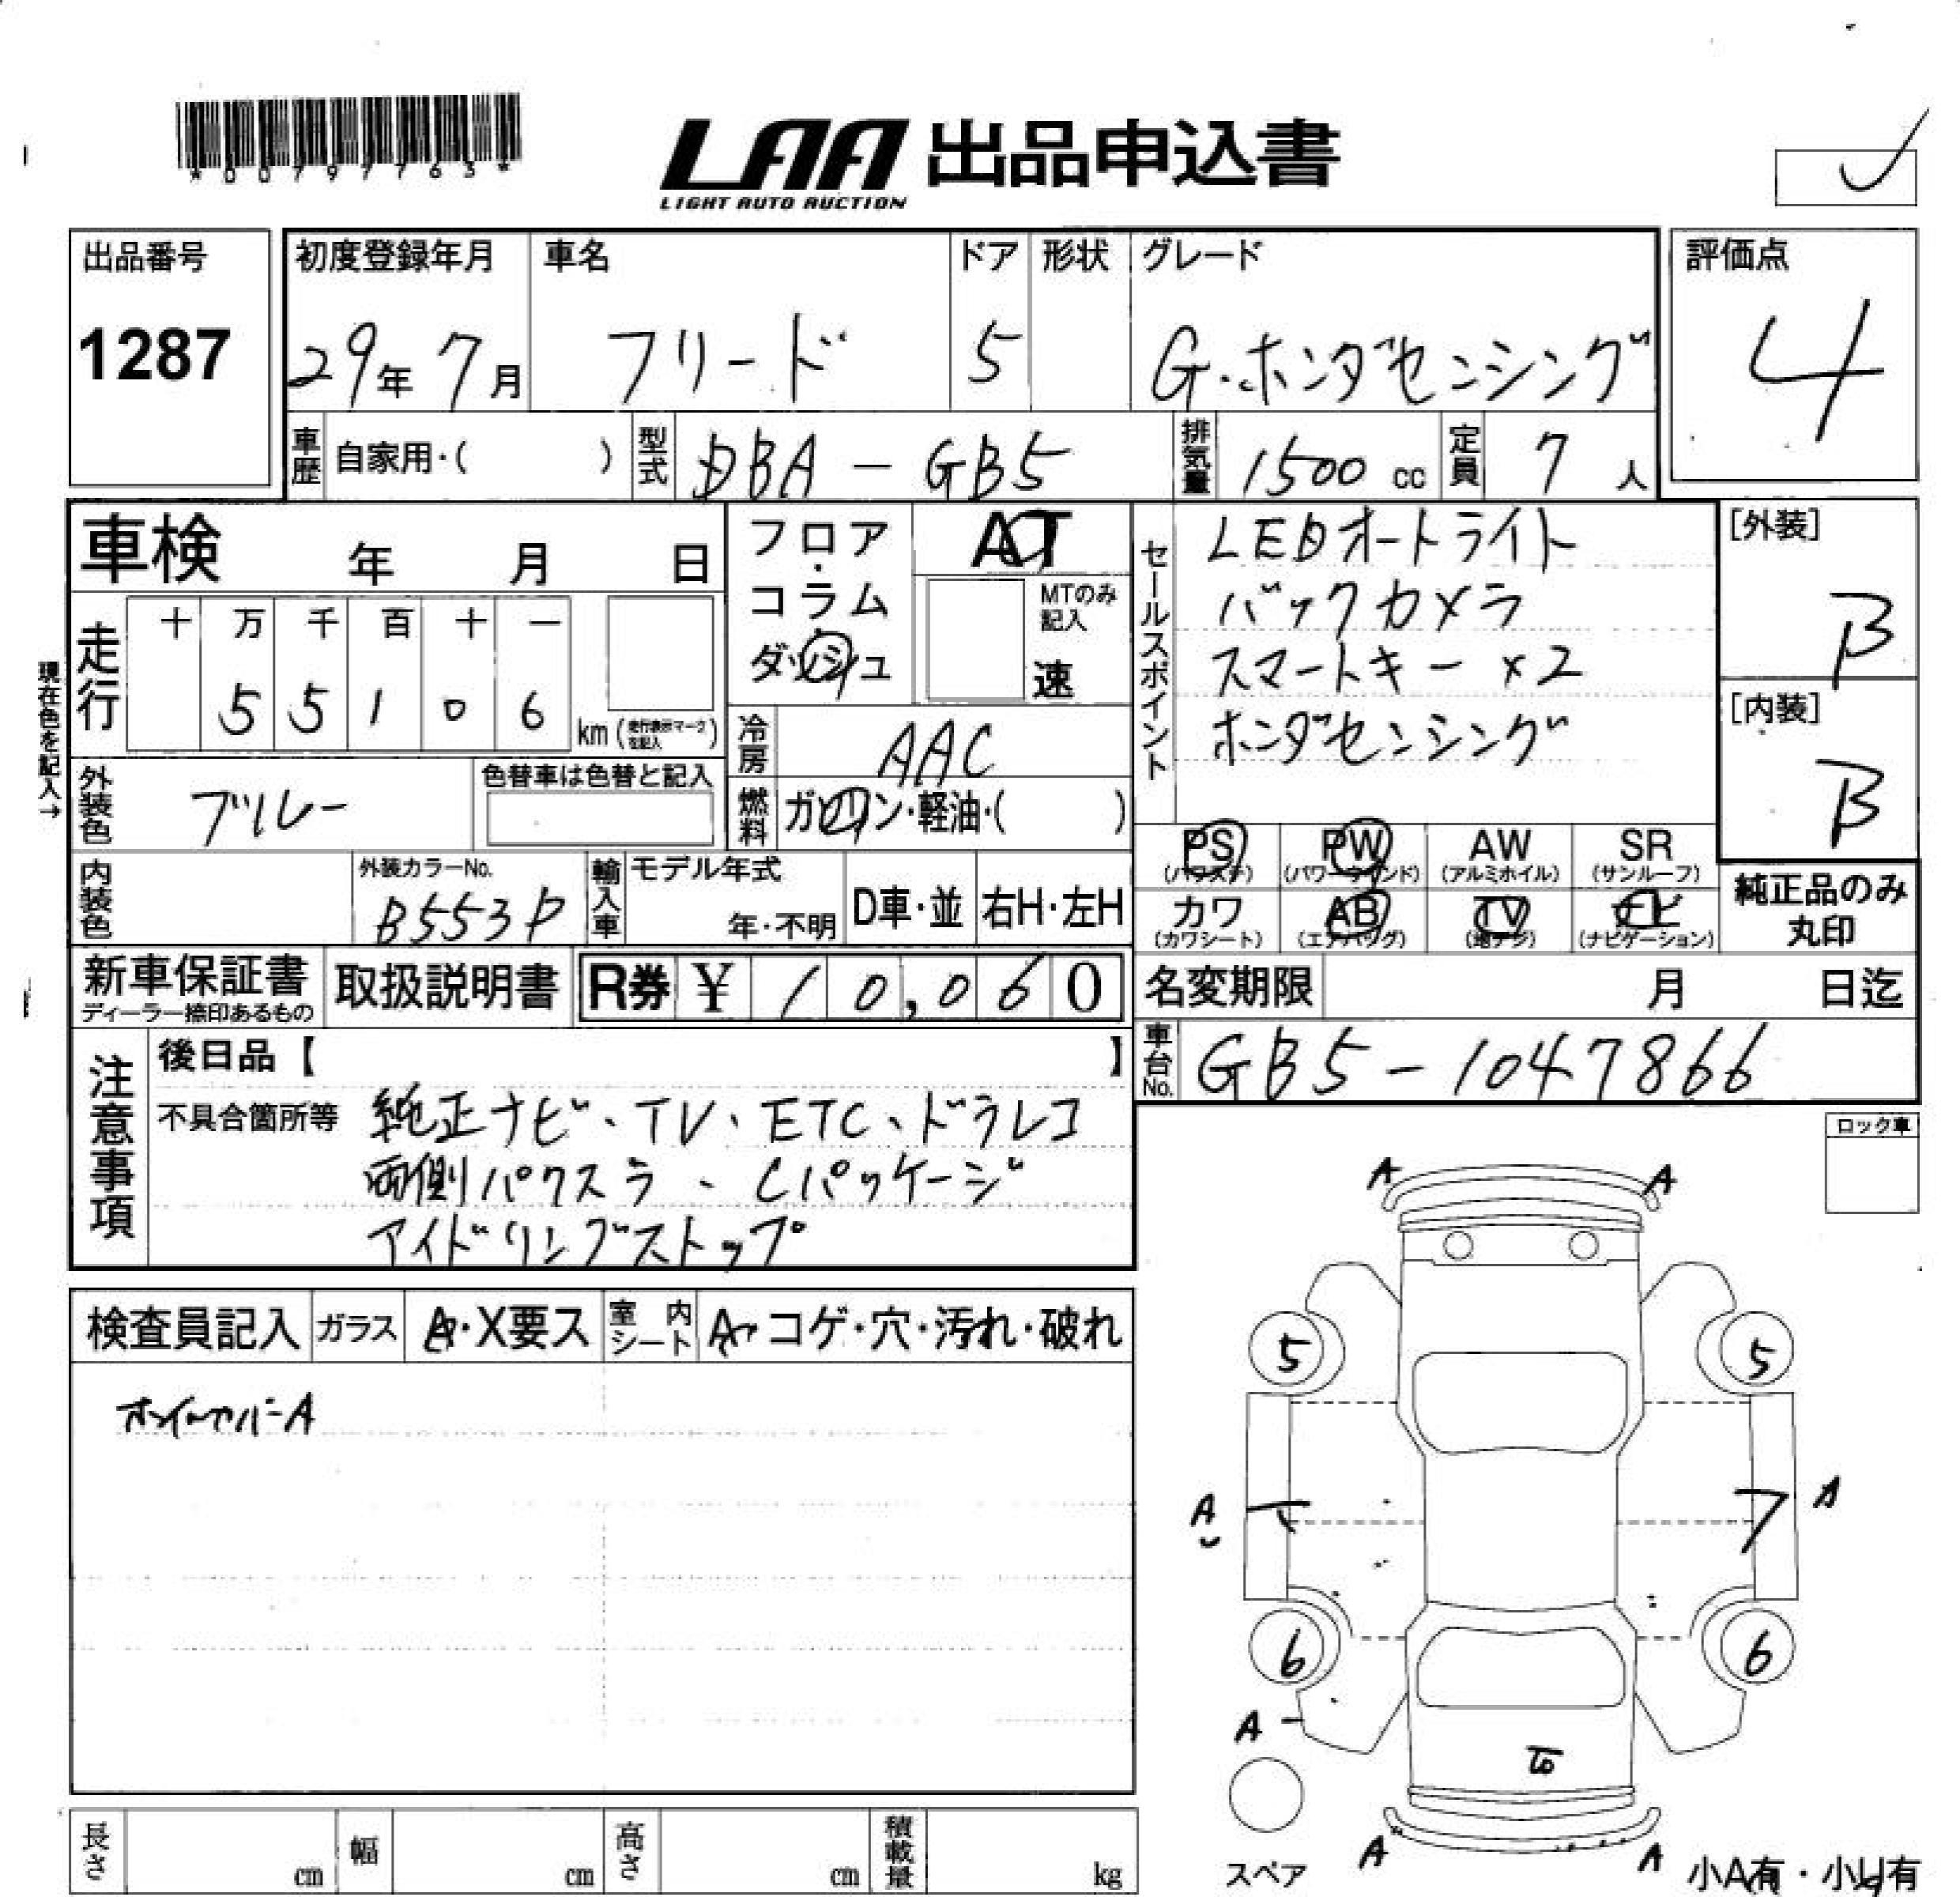 *00797763*
LAA 出品申込書
LIGHT AUTO AUCTION
出品番号
1287
初度登録年月
29年 7月
車名
フリード
ドア
5
形状
グレード
G・ホンダセンシング
評価点
4
車歴 自家用・( )
型式 DBA - GB5
排気量 1500 cc
定員 7 人
車検 年 月 日
フロア・コラム・ダッシュ
AT
MTのみ記入
速
セールスポイント
LEDオートライト
バックカメラ
スマートキー ×2
ホンダセンシング
[外装]
B
[内装]
B
現在色を記入→
走行
十 万 千 百 十 一
5 5 1 0 6 km (走行表示マークを記入)
冷房 AAC
燃料 ガソリン・軽油・( )
外装色 ブルー
色替車は色替と記入
内装色
外装カラーNo.
B553P
輸入車
モデル年式
年・不明
D車・並
右H・左H
PS (パワステ)
PW (パワーウインド)
AW (アルミホイル)
SR (サンルーフ)
カワ (カワシート)
AB (エアバッグ)
TV (地デジ)
ナビ (ナビゲーション)
純正品のみ丸印
新車保証書
ディーラー捺印あるもの
取扱説明書
R券 ¥ 10,060
名変期限 月 日迄
車台No. GB5-1047866
注意事項
後日品【 】
不具合箇所等 純正ナビ、TV、ETC、ドラレコ
両側パワスラ、Cパッケージ
アイドリングストップ
ロック車
検査員記入
ガラス
・X要ス
室内シート
コゲ・穴・汚れ・破れ
ホイールカバーA
A A
5 5
A A
6 6
A
A A
スペア
小A有・小U有
長さ cm
幅 cm
高さ cm
積載量 kg